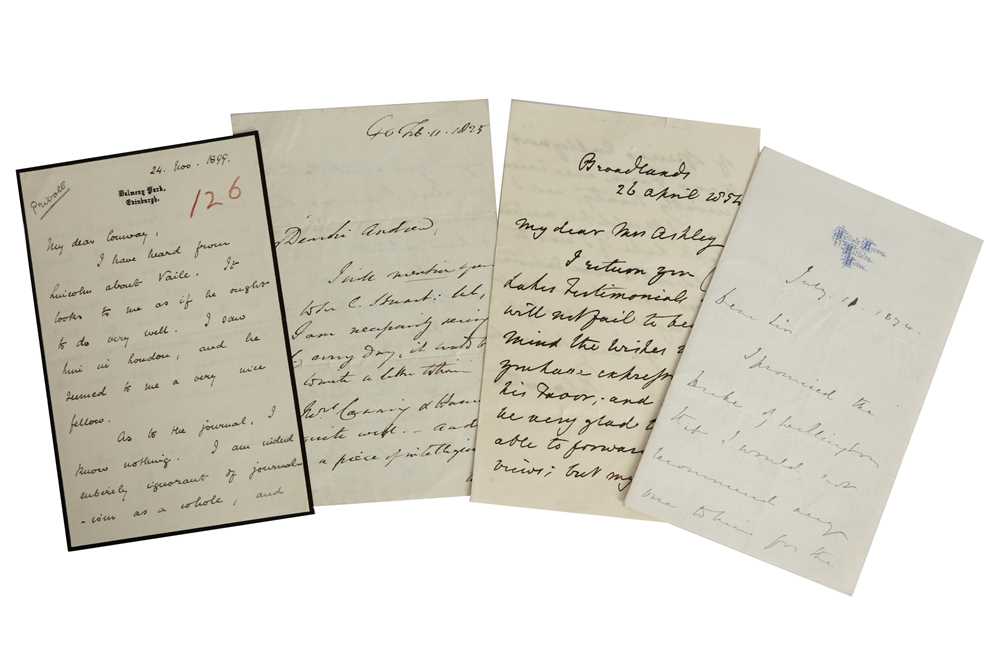 24. Nov. 1899.
Private
Dalmeny Park,
Edinburgh.
126
My dear Conway,
I have heard from
Lincoln about Vaile. It
looks to me as if he ought
to do very well. I saw
him in London, and he
seemed to me a very nice
fellow.
As to the journal, I
know nothing. I am indeed
entirely ignorant of journal-
-ism as a whole, and
11. 1825
I will mention you
to Sir C. Stuart: but,
I am necessarily seeing
every day, it would b
to write a letter to him
Mrs Canning & Harr
quite well. — and
a piece of intelligen
Broadlands
26 April 1854
My dear Mrs Ashley
I return you
Lukes Testimonials
will not fail to bea
mind the wishes
you have express
his Favor; and
be very glad t
able to forward
views; but my
July. 11. 1874.
Dear Sir
I promised the
Duke of Wellington
that I would not
recommend any
one to him for the